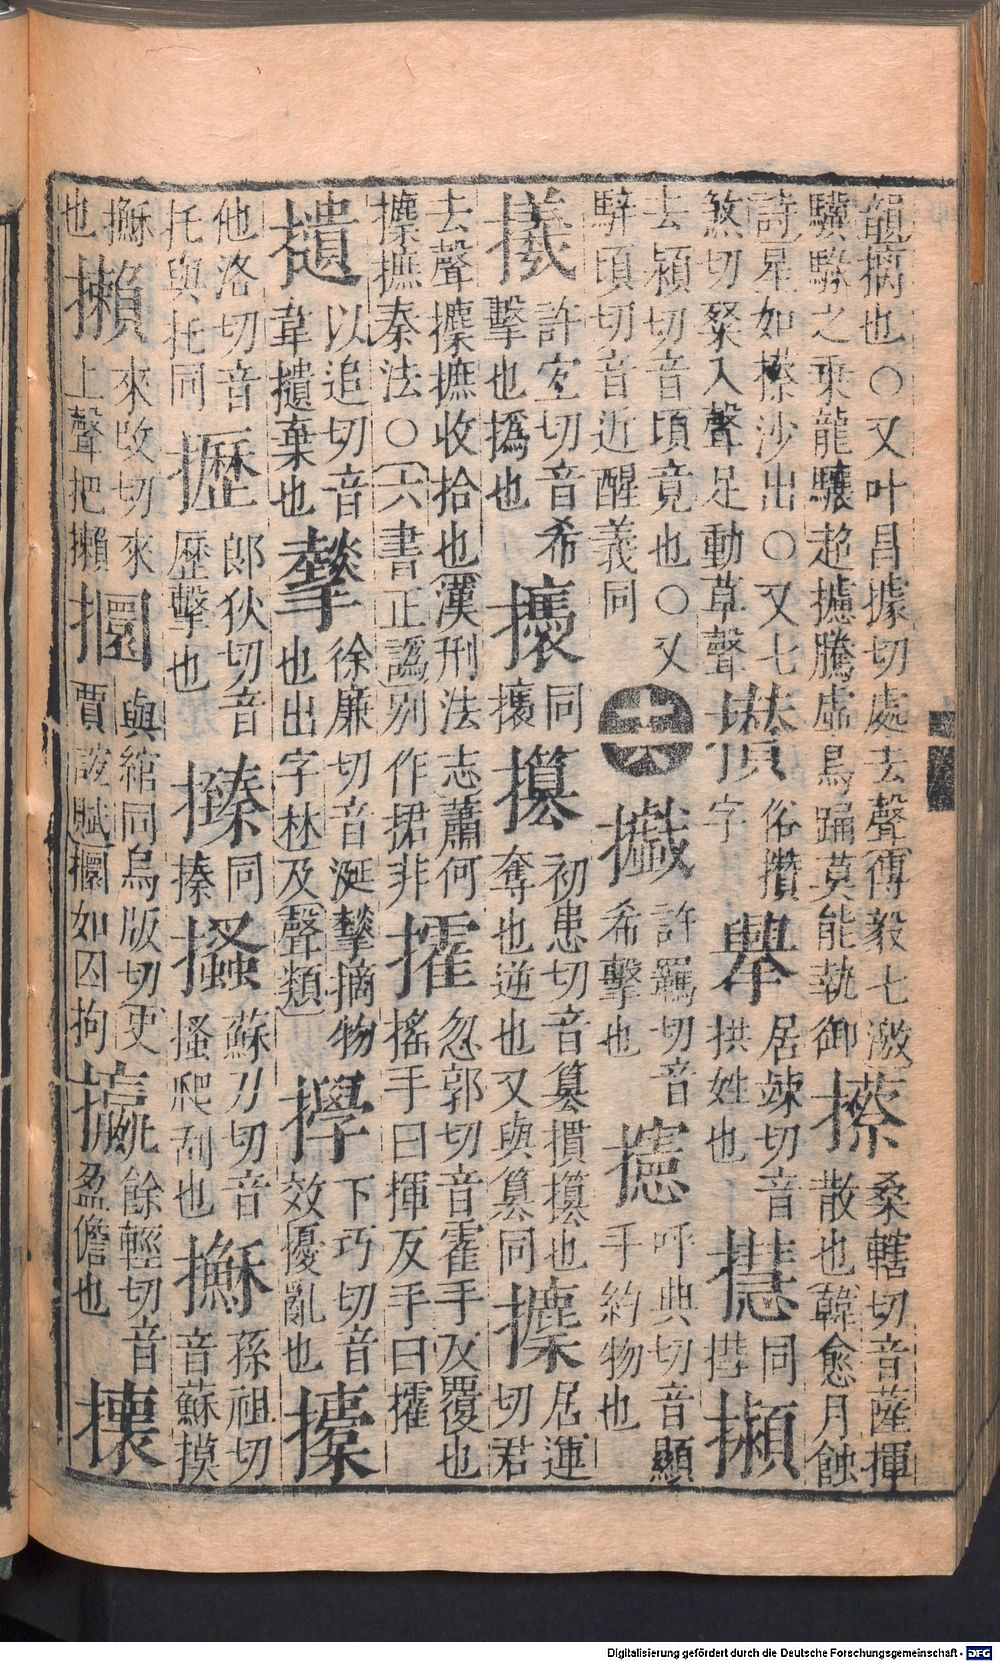 韻擿也○又叶昌據切處去聲傅毅七激驥騄之乘龍驤超攄騰虛鳥踊莫能執御攃桑轄切音薩揮散也韓愈月蝕
詩星如攃沙出○又七煞切粲入聲足動草聲俗攢字居竦切音拱姓也同攋
去穎切音頃竟也○又騂頃切音近醒義同十六許羈切音希擊也攇呼典切音顯手約物也
㩠許宜切音希擊也撝也同攘攥初患切音篡攥也奪也逆也又與篡同攈居運切君
去聲攈摭收拾也漢刑法志蕭何攈摭秦法○六書正譌別作捃非攉忽郭切音霍手反覆也搖手曰揮反手曰攉
以追切音韋棄也徐廉切音涎摘物也出字林及聲類下巧切音效擾亂也
他洛切音托與托同攊郎狄切音歷擊也同搸蘇刀切音搔爬刮也孫祖切音蘇摸
也攋來改切來上聲把攋攌與綰同烏版切史賈誼賦攌如囚拘攍餘輕切音盈儋也攘
Digitalisierung gefördert durch die Deutsche Forschungsgemeinschaft - DFG